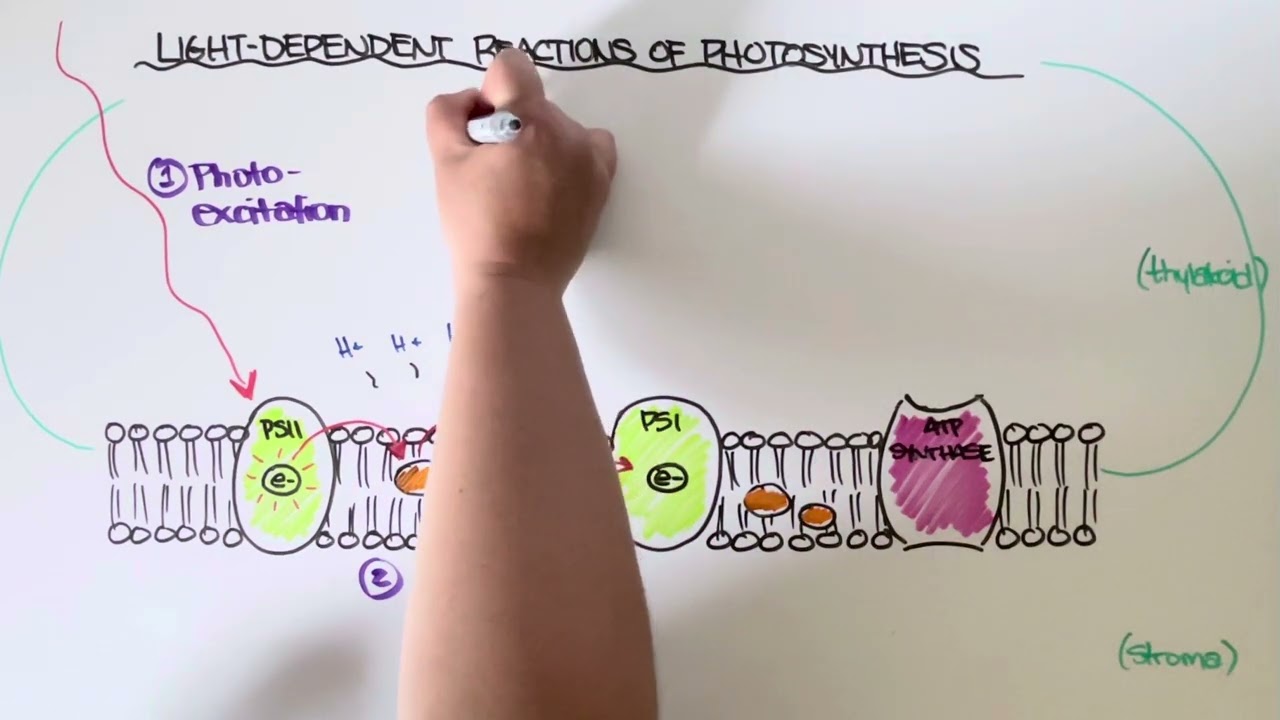 LIGHT-DEPENDENT REACTIONS OF PHOTOSYNTHESIS
1 Photo-
excitation
(thylakoid)
H+ H+
PSII
e-
PSI
e-
ATP
SYNTHASE
2
(stroma)